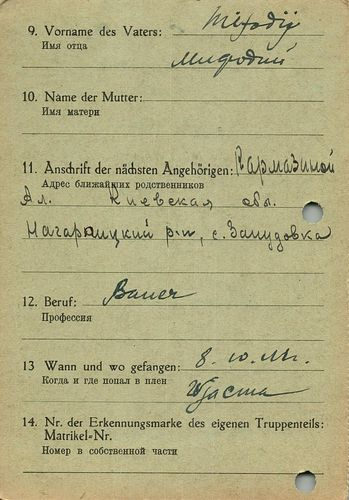 9. Vorname des Vaters: Mefodij
Имя отца
Мифодий
10. Name der Mutter:
Имя матери
11. Anschrift der nächsten Angehörigen: Кармазиной
Адрес ближайших родственников
Ал. Киевская обл.
р-н, с.
12. Beruf: Bauer
Профессия
13 Wann und wo gefangen: 8.10.41.
Когда и где попал в плен
14. Nr. der Erkennungsmarke des eigenen Truppenteils:
Matrikel=Nr.
Номер в собственной части